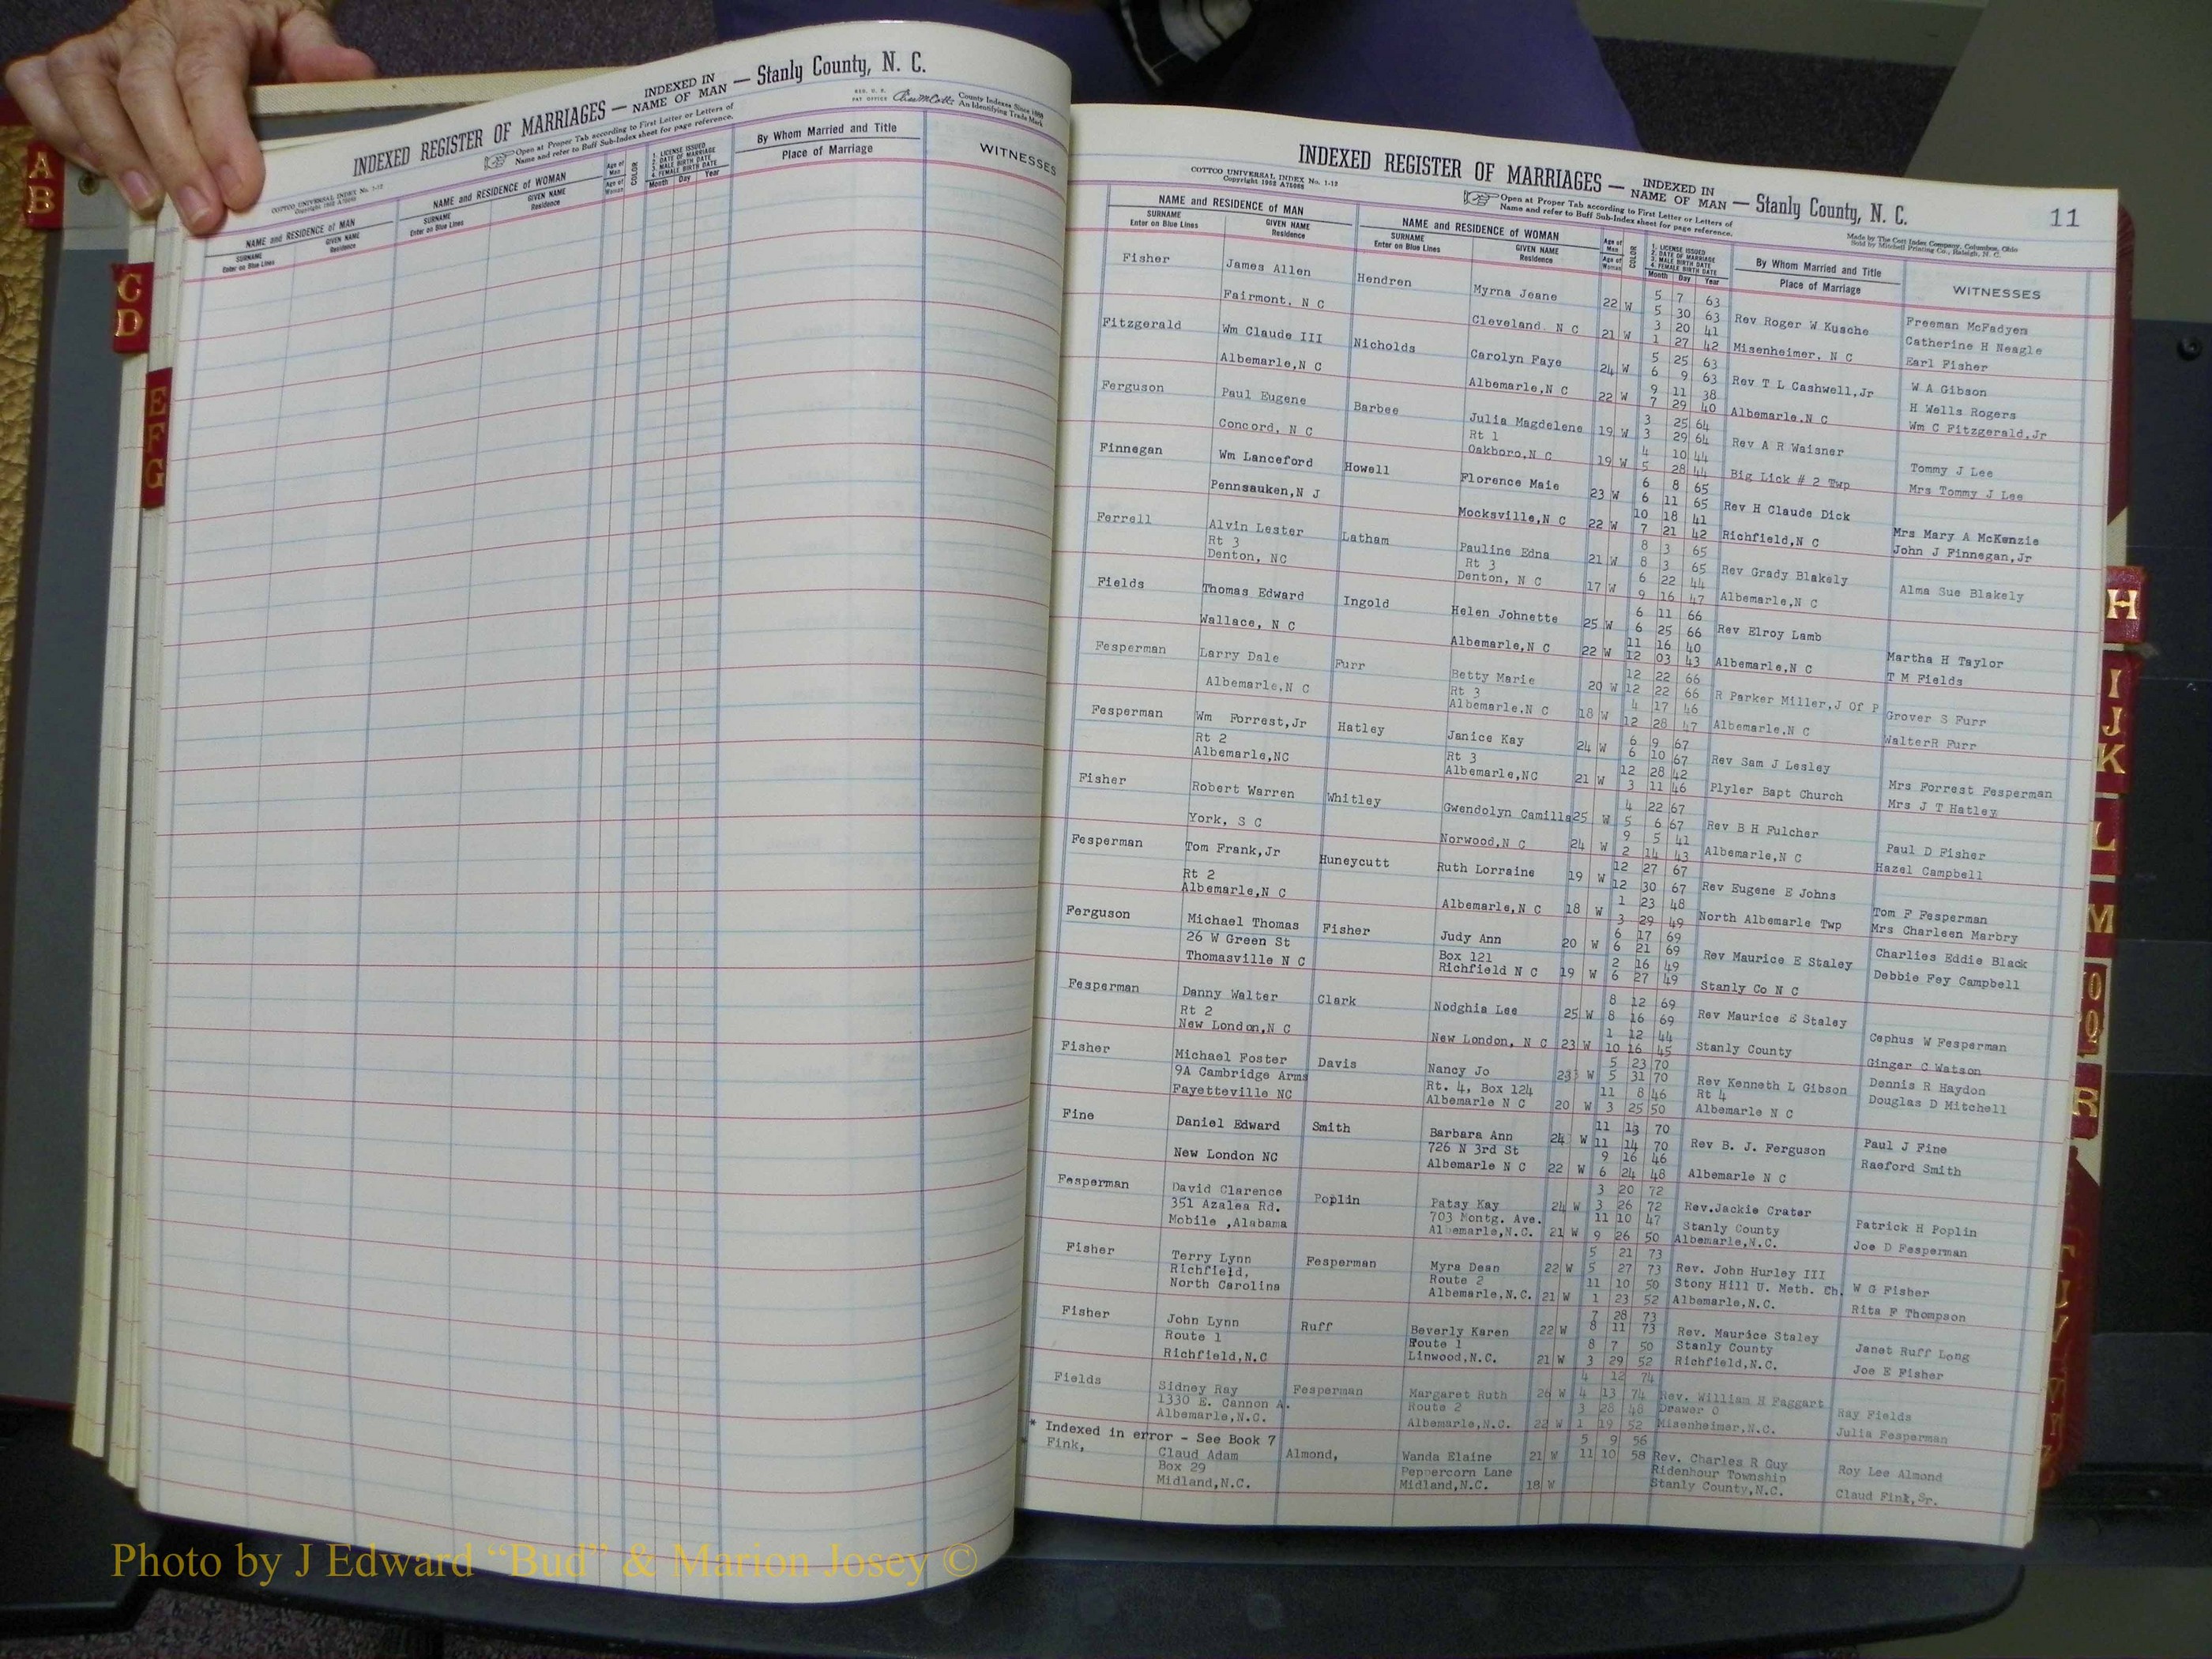 A
B
C
D
E
F
G
INDEXED REGISTER OF MARRIAGES — INDEXED IN NAME OF MAN — Stanly County, N. C.
COTTCO UNIVERSAL INDEX No. 1-12
Open at Proper Tab according to First Letter or Letters of
Name and refer to Buff Sub-Index sheet for page reference.
County Indexes Since 1888
An Identifying Trade Mark
NAME and RESIDENCE OF MAN
SURNAME
Enter on Blue Lines
GIVEN NAME
Residence
NAME and RESIDENCE OF WOMAN
SURNAME
Enter on Blue Lines
GIVEN NAME
Residence
Age of Man
Age of Woman
COLOR
1. LICENSE ISSUED
2. DATE OF MARRIAGE
3. MALE BIRTH DATE
4. FEMALE BIRTH DATE
Month Day Year
By Whom Married and Title
Place of Marriage
WITNESSES
INDEXED REGISTER OF MARRIAGES — INDEXED IN NAME OF MAN — Stanly County, N. C. 11
COTTCO UNIVERSAL INDEX No. 1-12
Open at Proper Tab according to First Letter or Letters of
Name and refer to Buff Sub-Index sheet for page reference.
Made by The Cott Index Company, Columbus, Ohio
Sold by Mitchell Printing Co., Raleigh, N. C.
NAME and RESIDENCE OF MAN
SURNAME
Enter on Blue Lines
GIVEN NAME
Residence
NAME and RESIDENCE OF WOMAN
SURNAME
Enter on Blue Lines
GIVEN NAME
Residence
Age of Man
Age of Woman
COLOR
1. LICENSE ISSUED
2. DATE OF MARRIAGE
3. MALE BIRTH DATE
4. FEMALE BIRTH DATE
Month Day Year
By Whom Married and Title
Place of Marriage
WITNESSES
Fisher James Allen Hendren Myrna Jeane 22 W 5 7 63 Rev Roger W Kusche Freeman McFadyen
5 30 63 Catherine H Neagle
Fairmont, N C Cleveland N C 21 W 3 20 41 Misenheimer, N C Earl Fisher
1 27 42
Fitzgerald Wm Claude III Nicholds Carolyn Faye 24 W 5 25 63 Rev T L Cashwell,Jr W A Gibson
6 9 63 H Wells Rogers
Albemarle,N C Albemarle,N C 22 W 9 11 38 Albemarle,N C Wm C Fitzgerald,Jr
7 29 40
Ferguson Paul Eugene Barbee Julia Magdelene 19 W 3 25 64 Rev A R Waisner Tommy J Lee
Rt 1 3 29 64
Concord, N C Oakboro,N C 19 W 4 10 44 Big Lick # 2 Twp Mrs Tommy J Lee
5 28 44
Finnegan Wm Lanceford Howell Florence Maie 23 W 6 8 65 Rev H Claude Dick Mrs Mary A McKenzie
6 11 65
Pennsauken,N J Mocksville,N C 22 W 10 18 41 Richfield,N C John J Finnegan,Jr
7 21 42
Ferrell Alvin Lester Latham Pauline Edna 21 W 8 3 65 Rev Grady Blakely Alma Sue Blakely
Rt 3 Rt 3 8 3 65
Denton, NC Denton, N C 17 W 6 22 44 Albemarle,N C
9 16 47
Fields Thomas Edward Ingold Helen Johnette 25 W 6 11 66 Rev Elroy Lamb Martha H Taylor
6 25 66
Wallace, N C Albemarle,N C 22 W 11 16 40 Albemarle,N C T M Fields
12 03 43
Fesperman Larry Dale Furr Betty Marie 20 W 12 22 66 R Parker Miller,J Of P Grover S Furr
Rt 3 12 22 66
Albemarle,N C Albemarle,N C 18 W 4 17 46 Albemarle,N C WalterR Furr
12 28 47
Fesperman Wm Forrest,Jr Hatley Janice Kay 24 W 6 9 67 Rev Sam J Lesley Mrs Forrest Fesperman
Rt 2 Rt 3 6 10 67
Albemarle,NC Albemarle,NC 21 W 12 28 42 Plyler Bapt Church Mrs J T Hatley
3 11 46
Fisher Robert Warren Whitley Gwendolyn Camilla 25 W 4 22 67 Rev B H Fulcher Paul D Fisher
5 6 67
York, S C Norwood,N C 24 W 9 5 41 Albemarle,N C Hazel Campbell
2 14 43
Fesperman Tom Frank,Jr Huneycutt Ruth Lorraine 19 W 12 27 67 Rev Eugene E Johns Tom F Fesperman
Rt 2 12 30 67
Albemarle,N C Albemarle,N C 18 W 1 23 48 North Albemarle Twp Mrs Charleen Marbry
3 29 49
Ferguson Michael Thomas Fisher Judy Ann 20 W 6 17 69 Rev Maurice E Staley Charlies Eddie Black
26 W Green St Box 121 6 21 69
Thomasville N C Richfield N C 19 W 2 16 49 Stanly Co N C Debbie Fey Campbell
6 27 49
Fesperman Danny Walter Clark Nodghia Lee 25 W 8 12 69 Rev Maurice E Staley Cephus W Fesperman
Rt 2 8 16 69
New London,N C New London, N C 23 W 1 12 44 Stanly County Ginger C Watson
10 16 45
Fisher Michael Foster Davis Nancy Jo 23 W 5 23 70 Rev Kenneth L Gibson Dennis R Haydon
9A Cambridge Arms Rt. 4, Box 124 5 31 70 Rt 4
Fayetteville NC Albemarle N C 20 W 11 8 46 Albemarle N C Douglas D Mitchell
3 25 50
Fine Daniel Edward Smith Barbara Ann 24 W 11 13 70 Rev B. J. Ferguson Paul J Fine
726 N 3rd St 11 14 70
New London NC Albemarle N C 22 W 9 16 46 Albemarle N C Raeford Smith
6 24 48
Fesperman David Clarence Poplin Patsy Kay 24 W 3 20 72 Rev.Jackie Crater Patrick H Poplin
351 Azalea Rd. 703 Montg. Ave. 3 26 72 Stanly County
Mobile ,Alabama Albemarle,N.C. 21 W 11 10 47 Albemarle,N.C. Joe D Fesperman
9 26 50
Fisher Terry Lynn Fesperman Myra Dean 22 W 5 21 73 Rev. John Hurley III W G Fisher
Richfield, Route 2 5 27 73 Stony Hill U. Meth. Ch.
North Carolina Albemarle,N.C. 21 W 11 10 50 Albemarle,N.C. Rita F Thompson
1 23 52
Fisher John Lynn Ruff Beverly Karen 22 W 7 28 73 Rev. Maurice Staley Janet Ruff Long
Route 1 Route 1 8 11 73 Stanly County
Richfield,N.C Linwood,N.C. 21 W 8 7 50 Richfield,N.C. Joe E Fisher
3 29 52
Fields Sidney Ray Fesperman Margaret Ruth 26 W 4 12 74 Rev. William H Faggart Ray Fields
1330 E. Cannon A. Route 2 4 13 74 Drawer O
Albemarle,N.C. Albemarle,N.C. 22 W 3 28 48 Misenheimer,N.C. Julia Fesperman
1 19 52
* Indexed in error - See Book 7
* Fink, Claud Adam Almond, Wanda Elaine 21 W 5 9 56 Rev. Charles R Guy Roy Lee Almond
Box 29 Peppercorn Lane 11 10 58 Ridenhour Township
Midland,N.C. Midland,N.C. 18 W Stanly County,N.C. Claud Fink,Sr.
H
I
J
K
L
M
R
Photo by J Edward “Bud” & Marion Josey ©